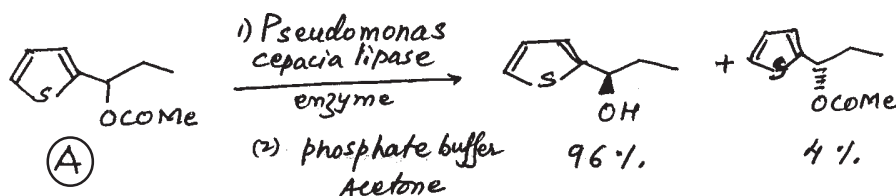 1) Pseudomonas
cepacia lipase
enzyme
(2) phosphate buffer
Acetone
S
OCOMe
A
S
OH
96 %.
+
S
OCOMe
4 %.